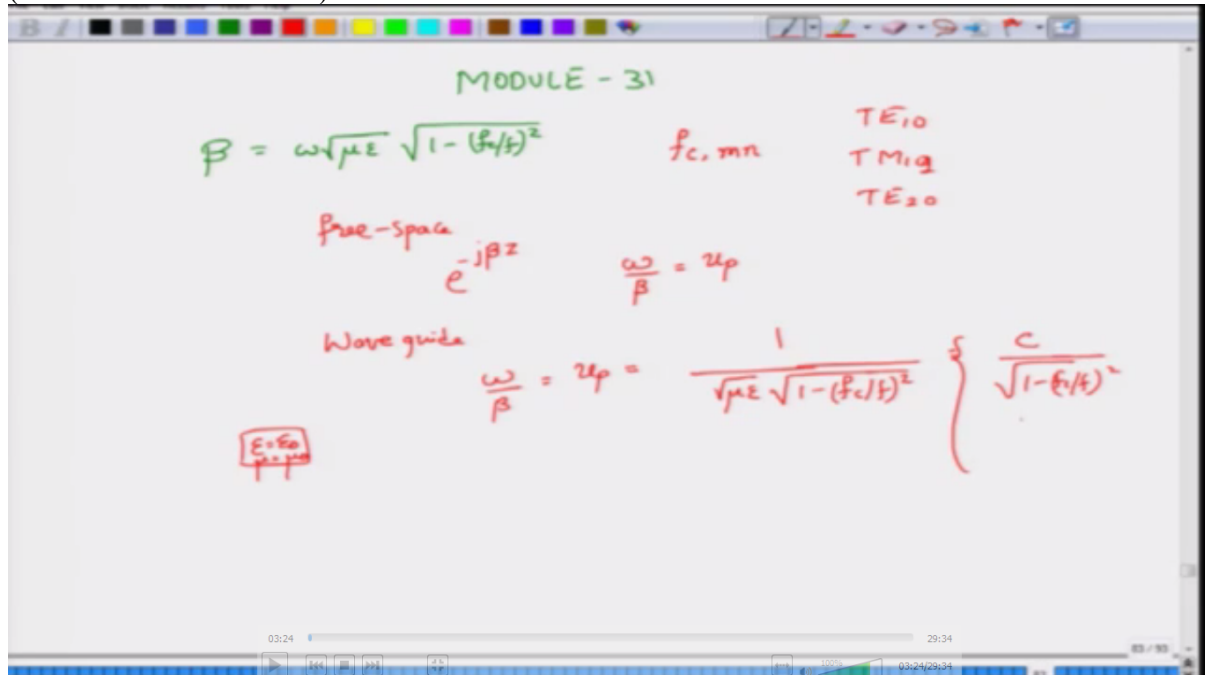 MODULE - 31
β = ω√με √1 - (fc/f)²
fc, mn
TE10
TM19
TE20
free-space
e^-jβz
ω/β = up
Wave guide
ω/β = up = 1/(√με √1-(fc/f)²) { c/√1-(fc/f)²
ε = ε0
μ = μ0
03:24
29:34
83 / 93
100%
03:24/29:34